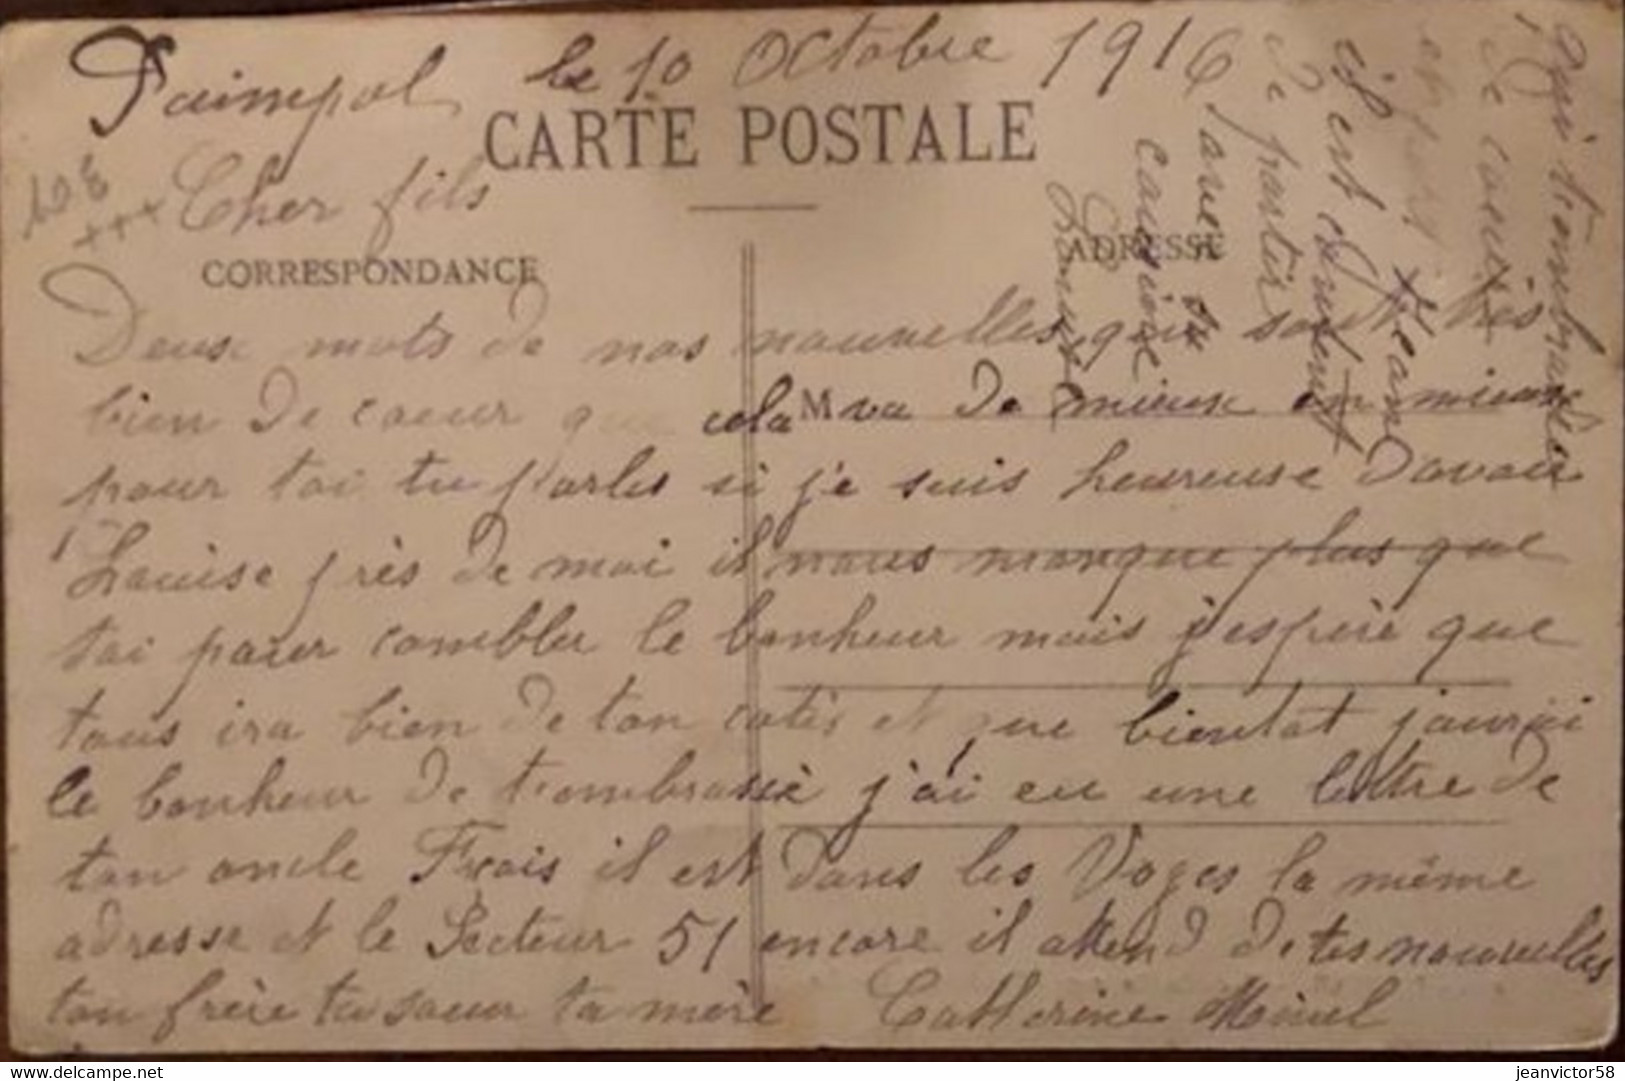 Paimpol le 10 Octobre 1916
CARTE POSTALE
Cher fils
CORRESPONDANCE
ADRESSE
Deux mots de nos nouvelles qui sont très
bien de coeur que cela va de mieux en mieux
M
pour toi tu parles si je suis heureuse davoir
Louise près de moi il nous manque plus que
toi pour combler le bonheur mais j'espère que
tous ira bien de ton cotés et que bientot jaurai
le bonheur de t'ombrassé j'ai eu une lettre de
ton oncle Frais il est dans les Voges la même
adresse et le Secteur 51 encore il attend de tes nouvelles
ton frère ta soeur ta mère Catherine Minel
qui t'ombrasse
de coeur
Jean
il est content
de partir
avec
camion
Louise
jeanvictor58
www.delcampe.net